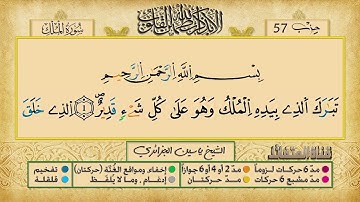 سُورَةُ المُلْكِ
أَلَا بِذِكْرِ اللَّهِ تَطْمَئِنُّ الْقُلُوبُ
حِزْب 57
بِسْمِ اللَّهِ الرَّحْمَٰنِ الرَّحِيمِ
تَبَٰرَكَ اَلذِے بِيَدِهِ اِلْمُلْكُ وَهُوَ عَلَىٰ كُلِّ شَےْءٍ قَدِيرٌ ١ اَلذِے خَلَقَ
الشيخ ياسين الجزائري
مدّ 6 حركات لزوماً
مدّ 2 أو 4 أو 6 جوازاً
إخفاء، ومواقع الغُنَّة (حركتان)
تفخيم
مدّ مشبع 6 حركات
مدّ حركتان
إدغام، وما لا يُلفَظ
قلقلة